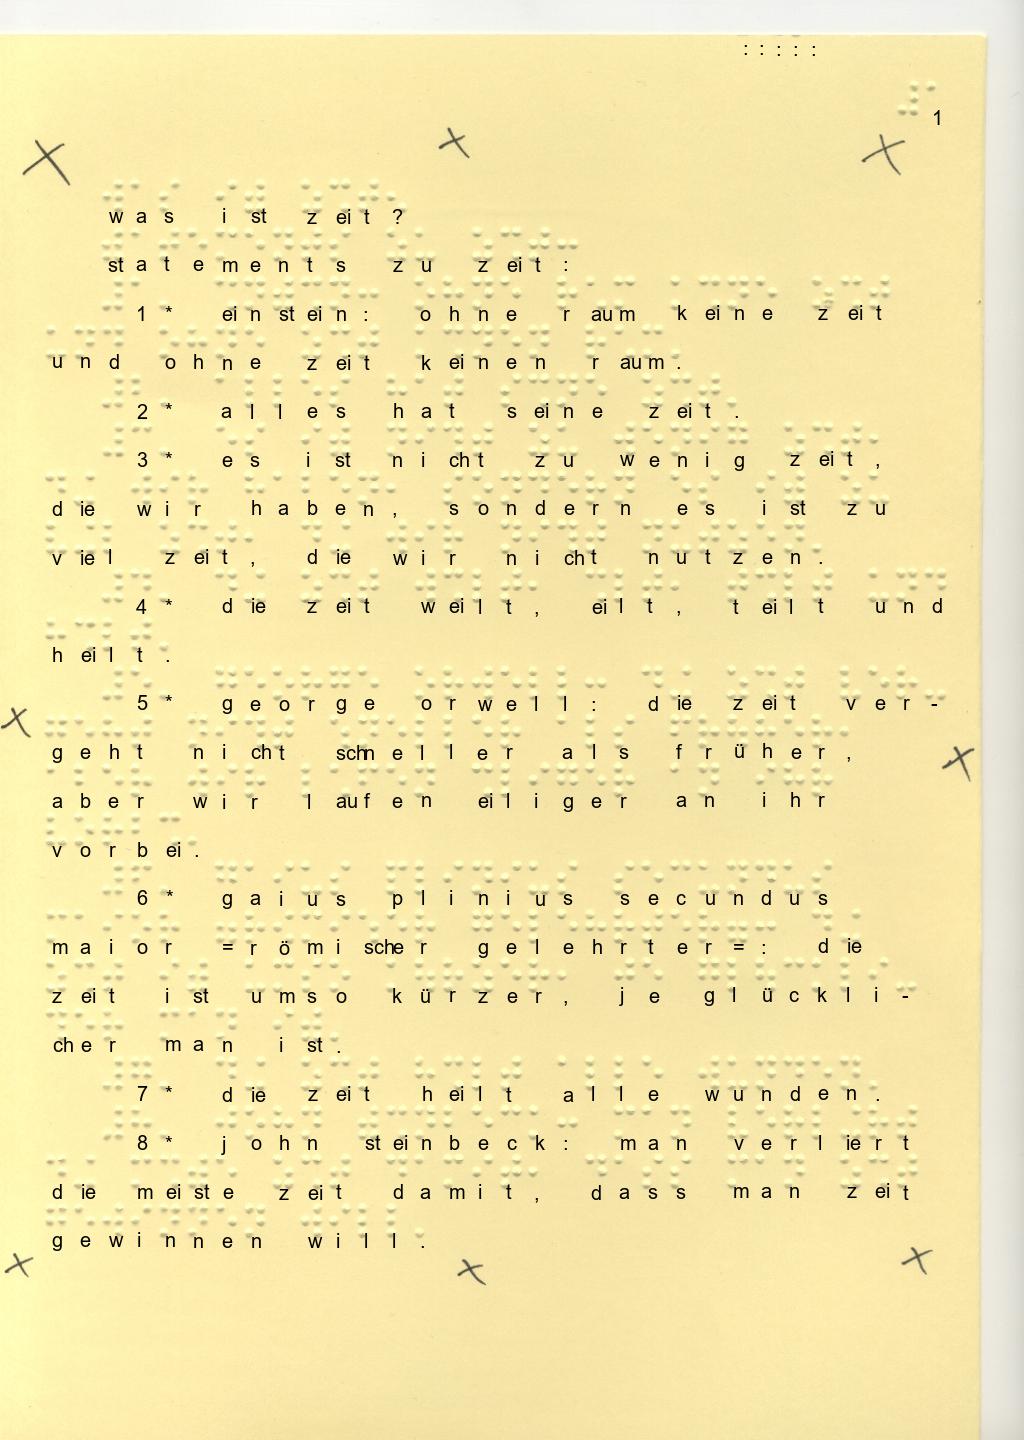 : : : : :
1
was ist zeit?
statements zu zeit:
1* einstein: ohne raum keine zeit
und ohne zeit keinen raum.
2* alles hat seine zeit.
3* es ist nicht zu wenig zeit,
die wir haben, sondern es ist zu
viel zeit, die wir nicht nutzen.
4* die zeit weilt, eilt, teilt und
heilt.
5* george orwell: die zeit ver-
geht nicht schneller als früher,
aber wir laufen eiliger an ihr
vorbei.
6* gaius plinius secundus
maior =römischer gelehrter=: die
zeit ist umso kürzer, je glückli-
cher man ist.
7* die zeit heilt alle wunden.
8* john steinbeck: man verliert
die meiste zeit damit, dass man zeit
gewinnen will.